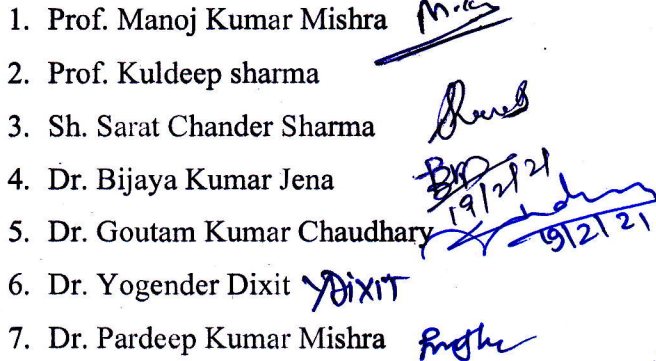 1. Prof. Manoj Kumar Mishra
2. Prof. Kuldeep sharma
3. Sh. Sarat Chander Sharma
4. Dr. Bijaya Kumar Jena
19/2/21
5. Dr. Goutam Kumar Chaudhary
19/2/21
6. Dr. Yogender Dixit YDixit
7. Dr. Pardeep Kumar Mishra